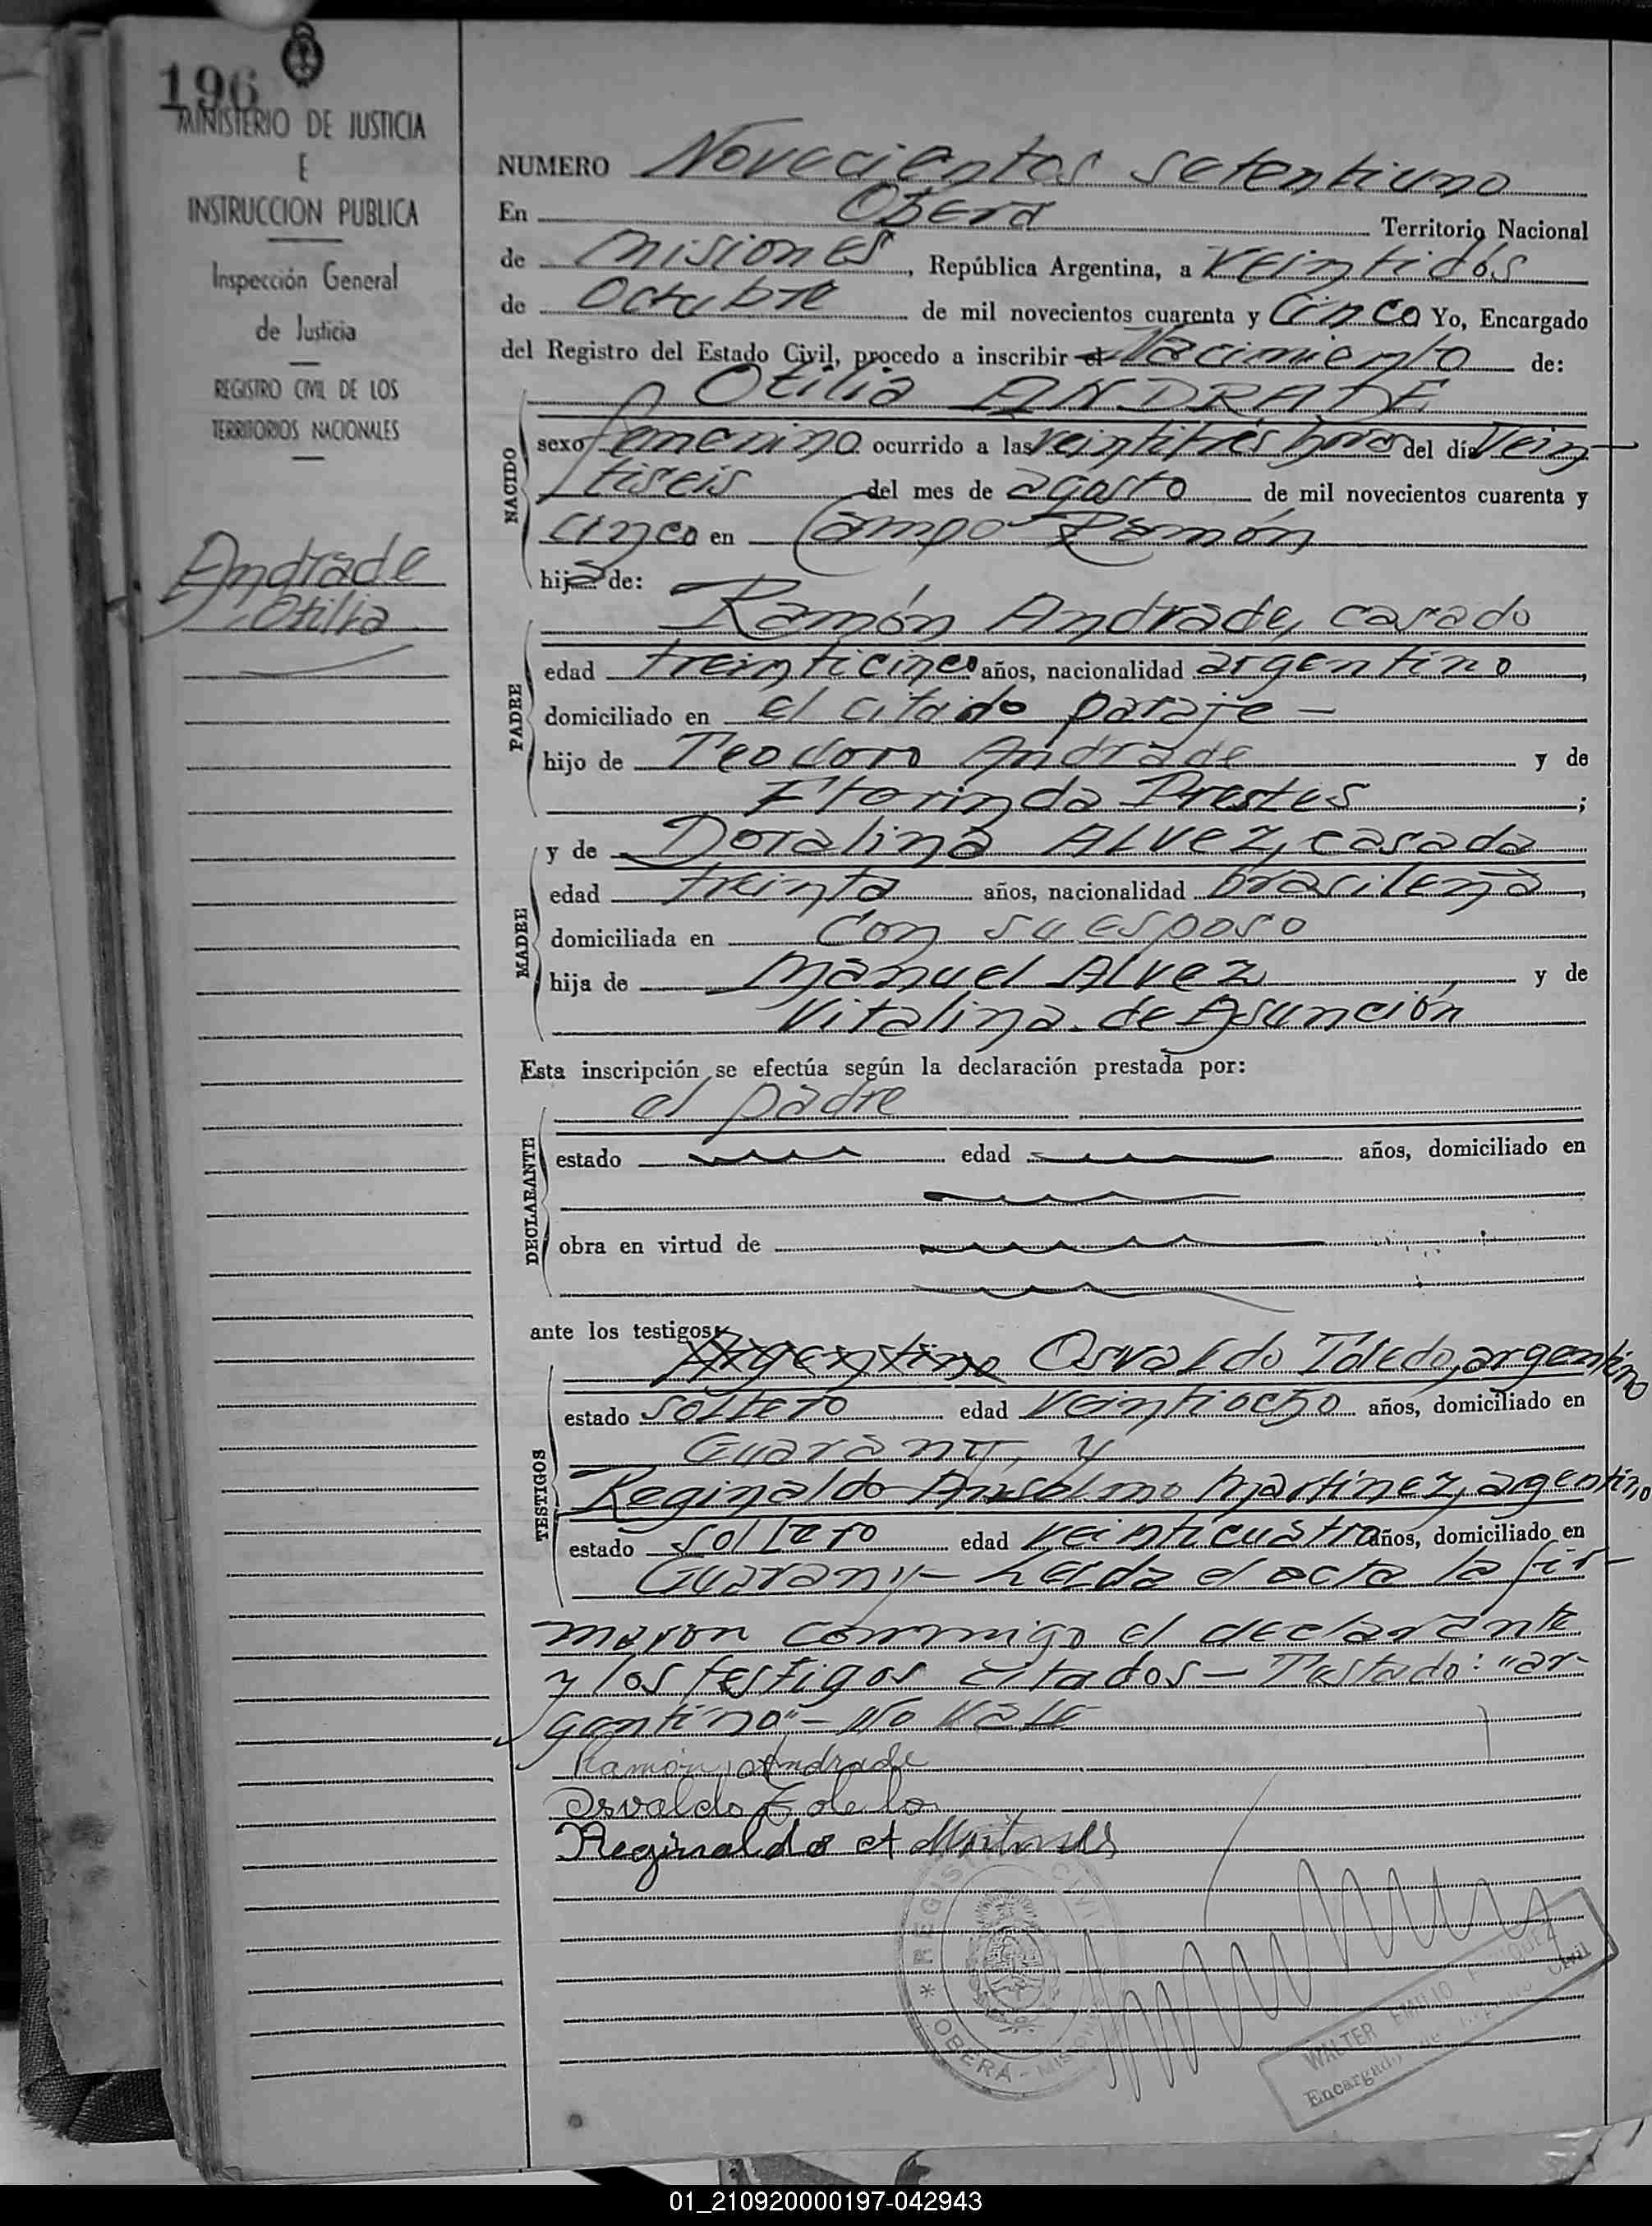 196
MINISTERIO DE JUSTICIA
E
INSTRUCCION PUBLICA
Inspección General
de Justicia
REGISTRO CIVIL DE LOS
TERRITORIOS NACIONALES
Andrade
Otilia
NUMERO Novecientos setentiuno
En Oberá Territorio Nacional
de Misiones, República Argentina, a veintidós
de Octubre de mil novecientos cuarenta y cinco Yo, Encargado
del Registro del Estado Civil, procedo a inscribir el Nacimiento de:
Otilia ANDRADE
NACIDO
sexo femenino ocurrido a las veintitrés horas del día vein-
tiseis del mes de agosto de mil novecientos cuarenta y
cinco en Campo Ramón
hija de:
Ramón Andrade, casado
PADRE
edad treinticinco años, nacionalidad argentino,
domiciliado en el citado paraje -
hijo de Teodoro Andrade y de
Florinda Prestes ;
y de Doralina ALVEZ, casada
MADRE
edad treinta años, nacionalidad brasileña,
domiciliada en con su esposo
hija de Manuel Alvez y de
Vitalina de Asunción
Esta inscripción se efectúa según la declaración prestada por:
el padre
DECLARANTE
estado edad años, domiciliado en
obra en virtud de
ante los testigos:
Argentino Osvaldo Toledo, argentino
TESTIGOS
estado soltero edad veintiocho años, domiciliado en
Guarany, y
Reginaldo Anselmo Martinez, argentino
estado soltero edad veinticuatro años, domiciliado en
Guarany - Leida el acta la fir-
maron conmigo el declarante
y los testigos citados - Testado: "ar-
gentino" - No vale
Ramón Andrade
Osvaldo Toledo
Reginaldo A Martines
* REGISTRO CIVIL
OBERÁ - MISIONES
WALTER EMILIO
Encargado de Registro Civil
01_210920000197-042943